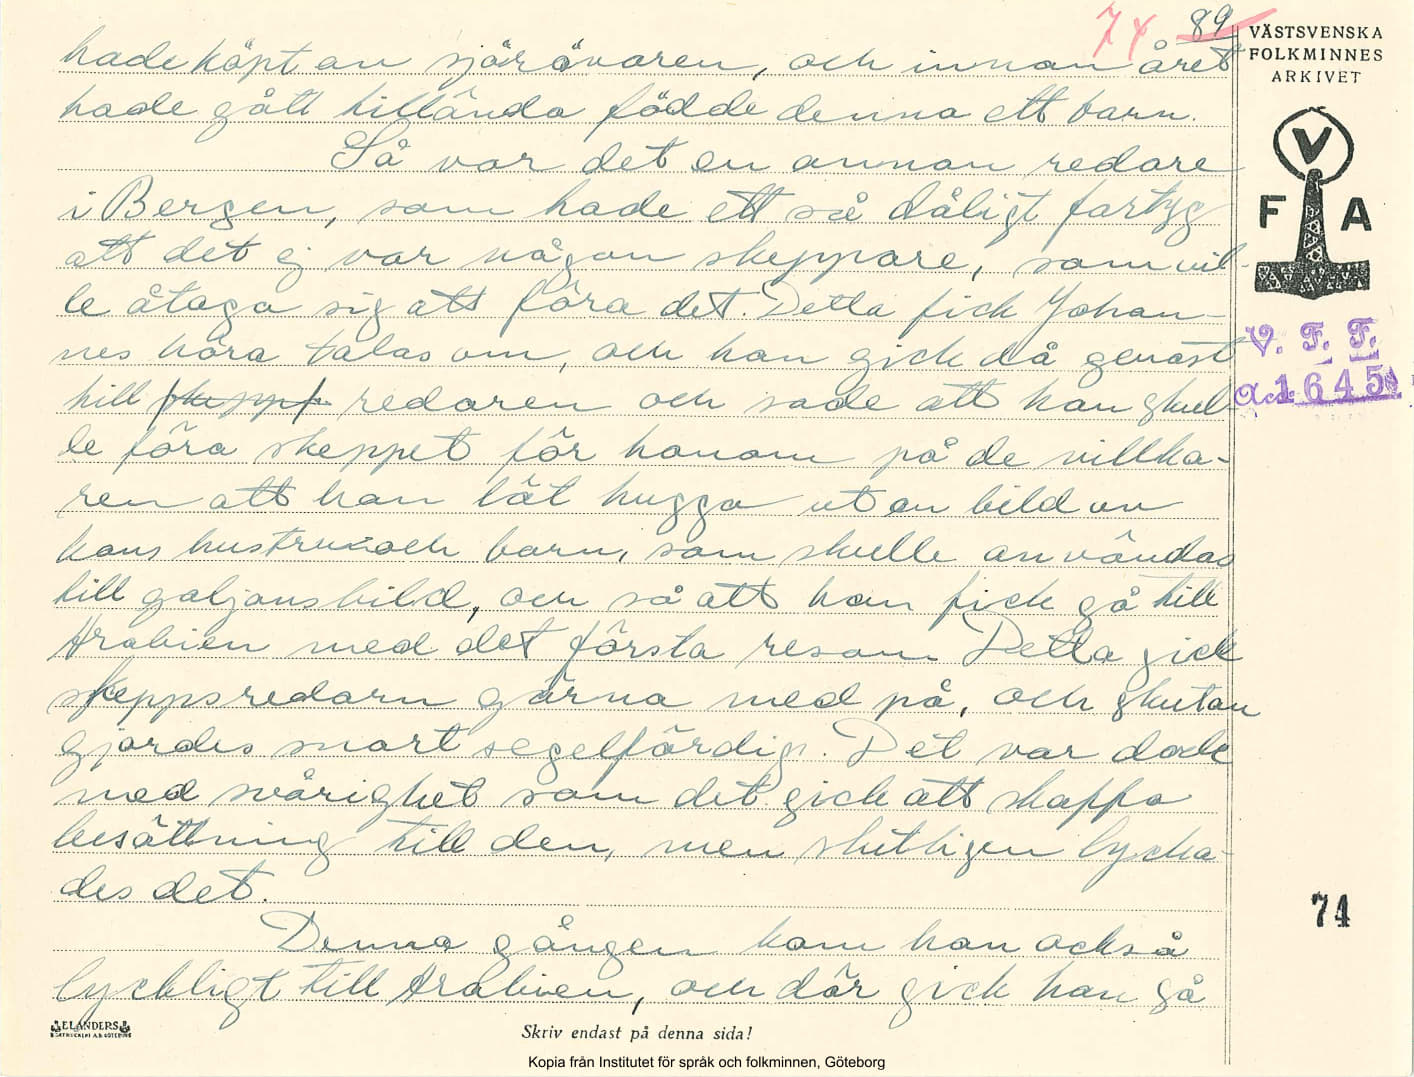 74 89
VÄSTSVENSKA
FOLKMINNES
ARKIVET
V
F A
V. F. F.
Acc. 1645
hade köpt an sjörövaren, och innan året
hade gått tilländа födde denna ett barn.
Så var det en annan redare
i Bergen, som hade ett så dåligt fartyg
att det ej var någon skeppare, som vil-
le åtaga sig att föra det. Detta fick Johan-
nes höra talas om, och han gick då genast
till redaren och sade att han skul-
le föra skeppet för honom på de villko-
ren att han lät hugga ut en bild av
hans hustru och barn, som skulle användas
till galjonsbild, och så att han fick gå till
Arabien med det första resan. Detta gick
skeppsredarn gärna med på, och skutan
gjordes snart segelfärdig. Det var dock
med svårighet som det gick att skaffa
besättning till den, men slutligen lycka-
des det.
Denna gången kom han också
lyckligt till Arabien, och där gick han så
74
ELANDERS
BOKTRYCKERI A.B. GÖTEBORG
Skriv endast på denna sida!
Kopia från Institutet för språk och folkminnen, Göteborg